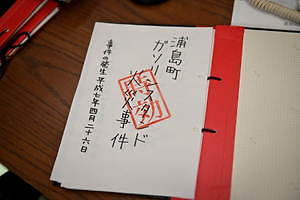 浦島町
ガソリンスタンド
火災事件
時効
事件の発生平成七年四月二十六日